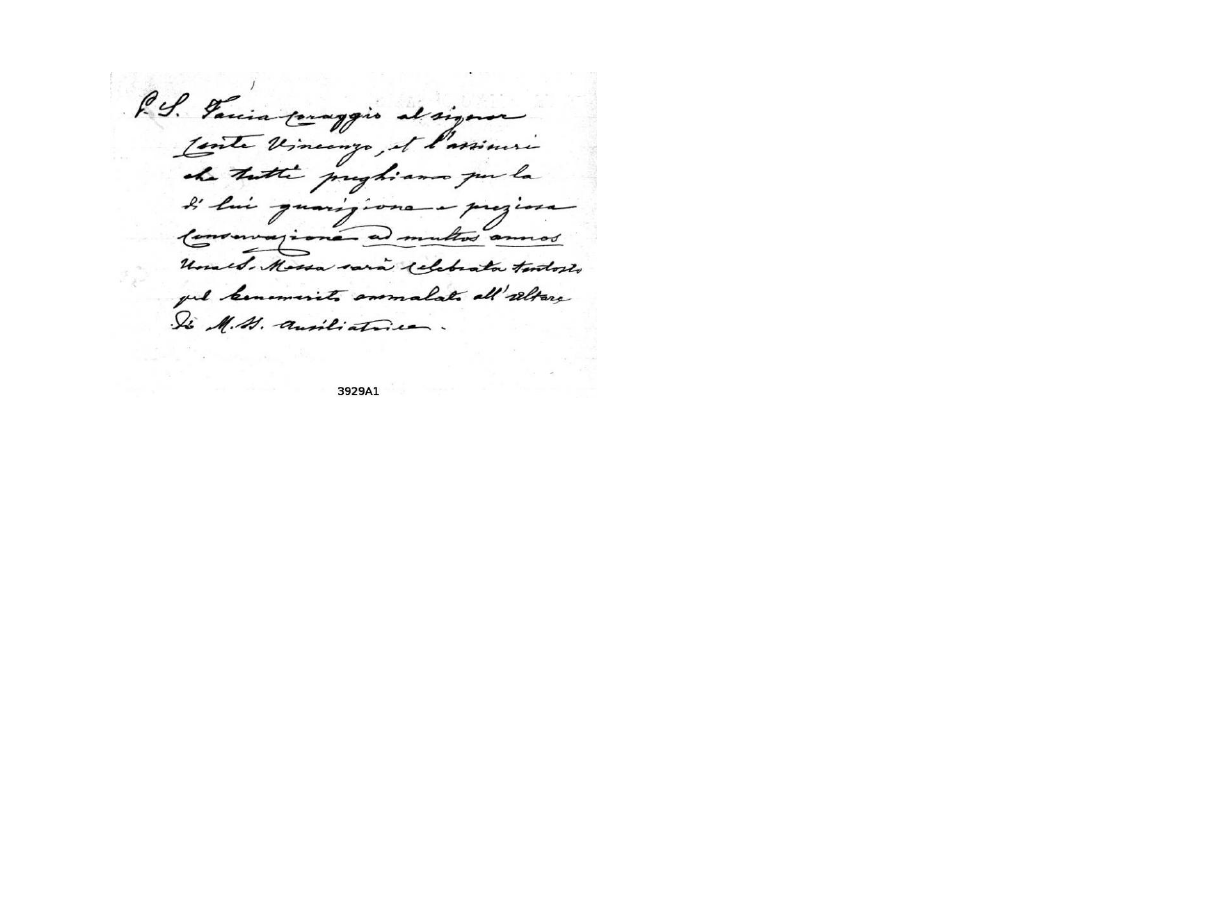 P.S. Faccia coraggio al signor
Conte Vincenzo, et l'assicuri
che tutti preghiamo per la
di lui guarigione e preziosa
conservazione ad multos annos
Una S. Messa sarà celebrata tantosto
pel benemerito ammalato all'altare
di M. SS. Ausiliatrice.
3929A1